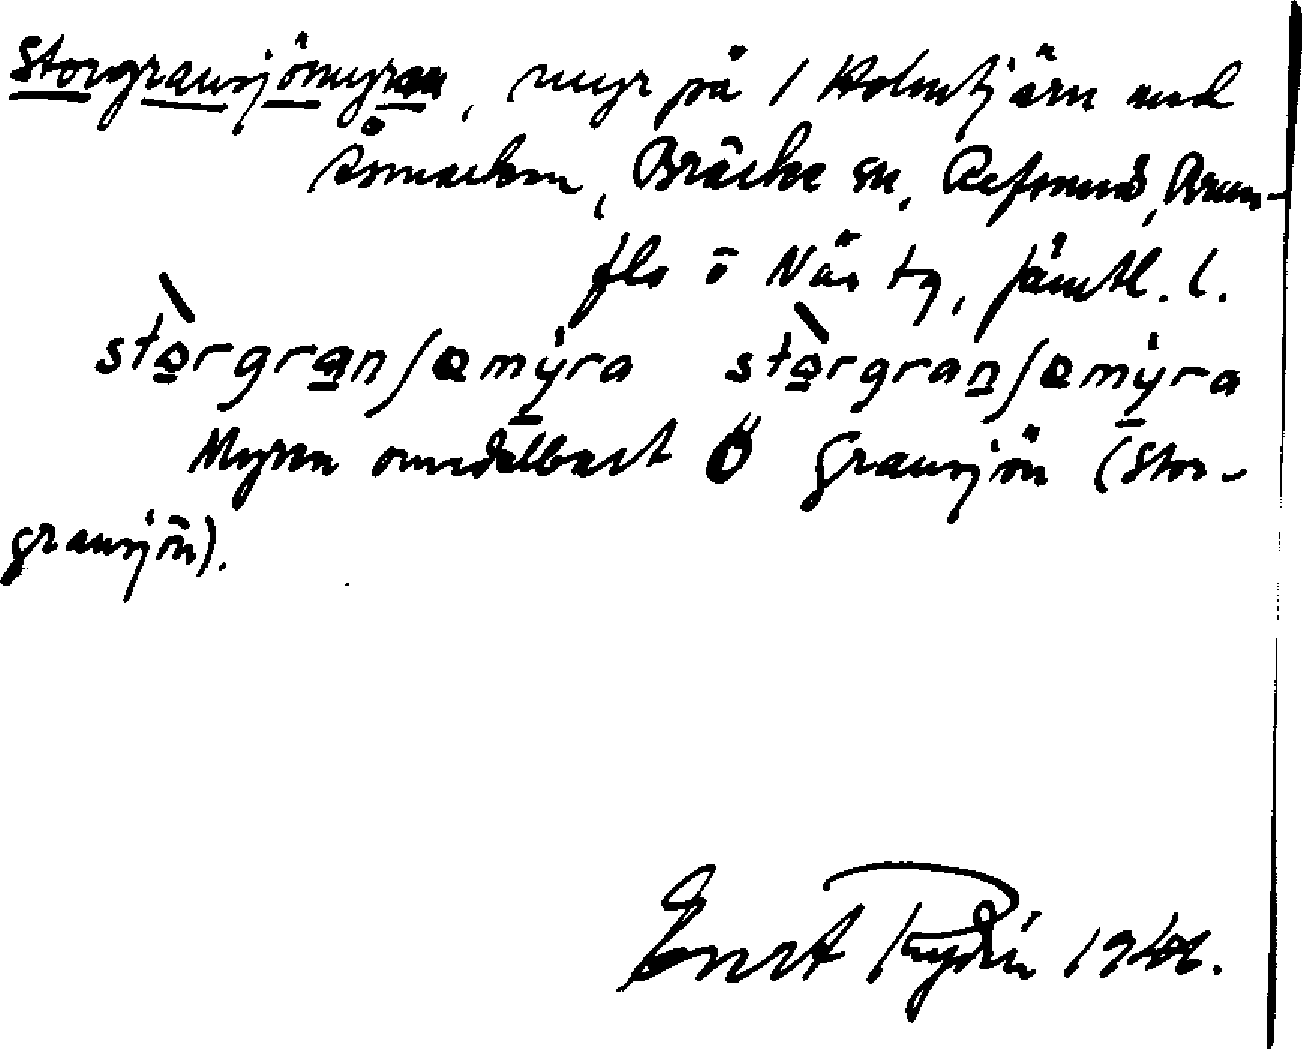 Storgransjömyran, myr på 1 Holmtjärn med
Åsmarken, Bräcke sn, Refsunds, Brun-
flo o Näs tg, Jämtl. l.
stòrgranʃəmýra stòrgranʃəmýra
Myren omedelbart Ö Gransjön (Stor-
gransjön).
1946.